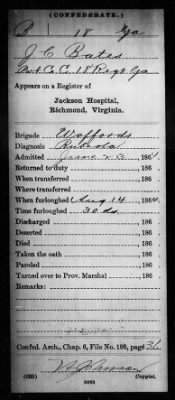 (CONFEDERATE.)
B 18 Ga
J C Bates
Co. C, 18 Regt Ga
Appears on a Register of
Jackson Hospital,
Richmond, Virginia.
Brigade Woffords
Diagnosis Rubeola
Admitted June 186 4.
Returned to duty , 186 .
When transferred , 186 .
Where transferred
When furloughed Aug 14 , 186 4.
Time furloughed 30 ds.
Discharged , 186 .
Deserted , 186 .
Died , 186 .
Took the oath , 186 .
Paroled , 186 .
Turned over to Prov. Marshal , 186 .
Remarks:
Confed. Arch., Chap. 6, File No. 186, page
(635) Copyist.